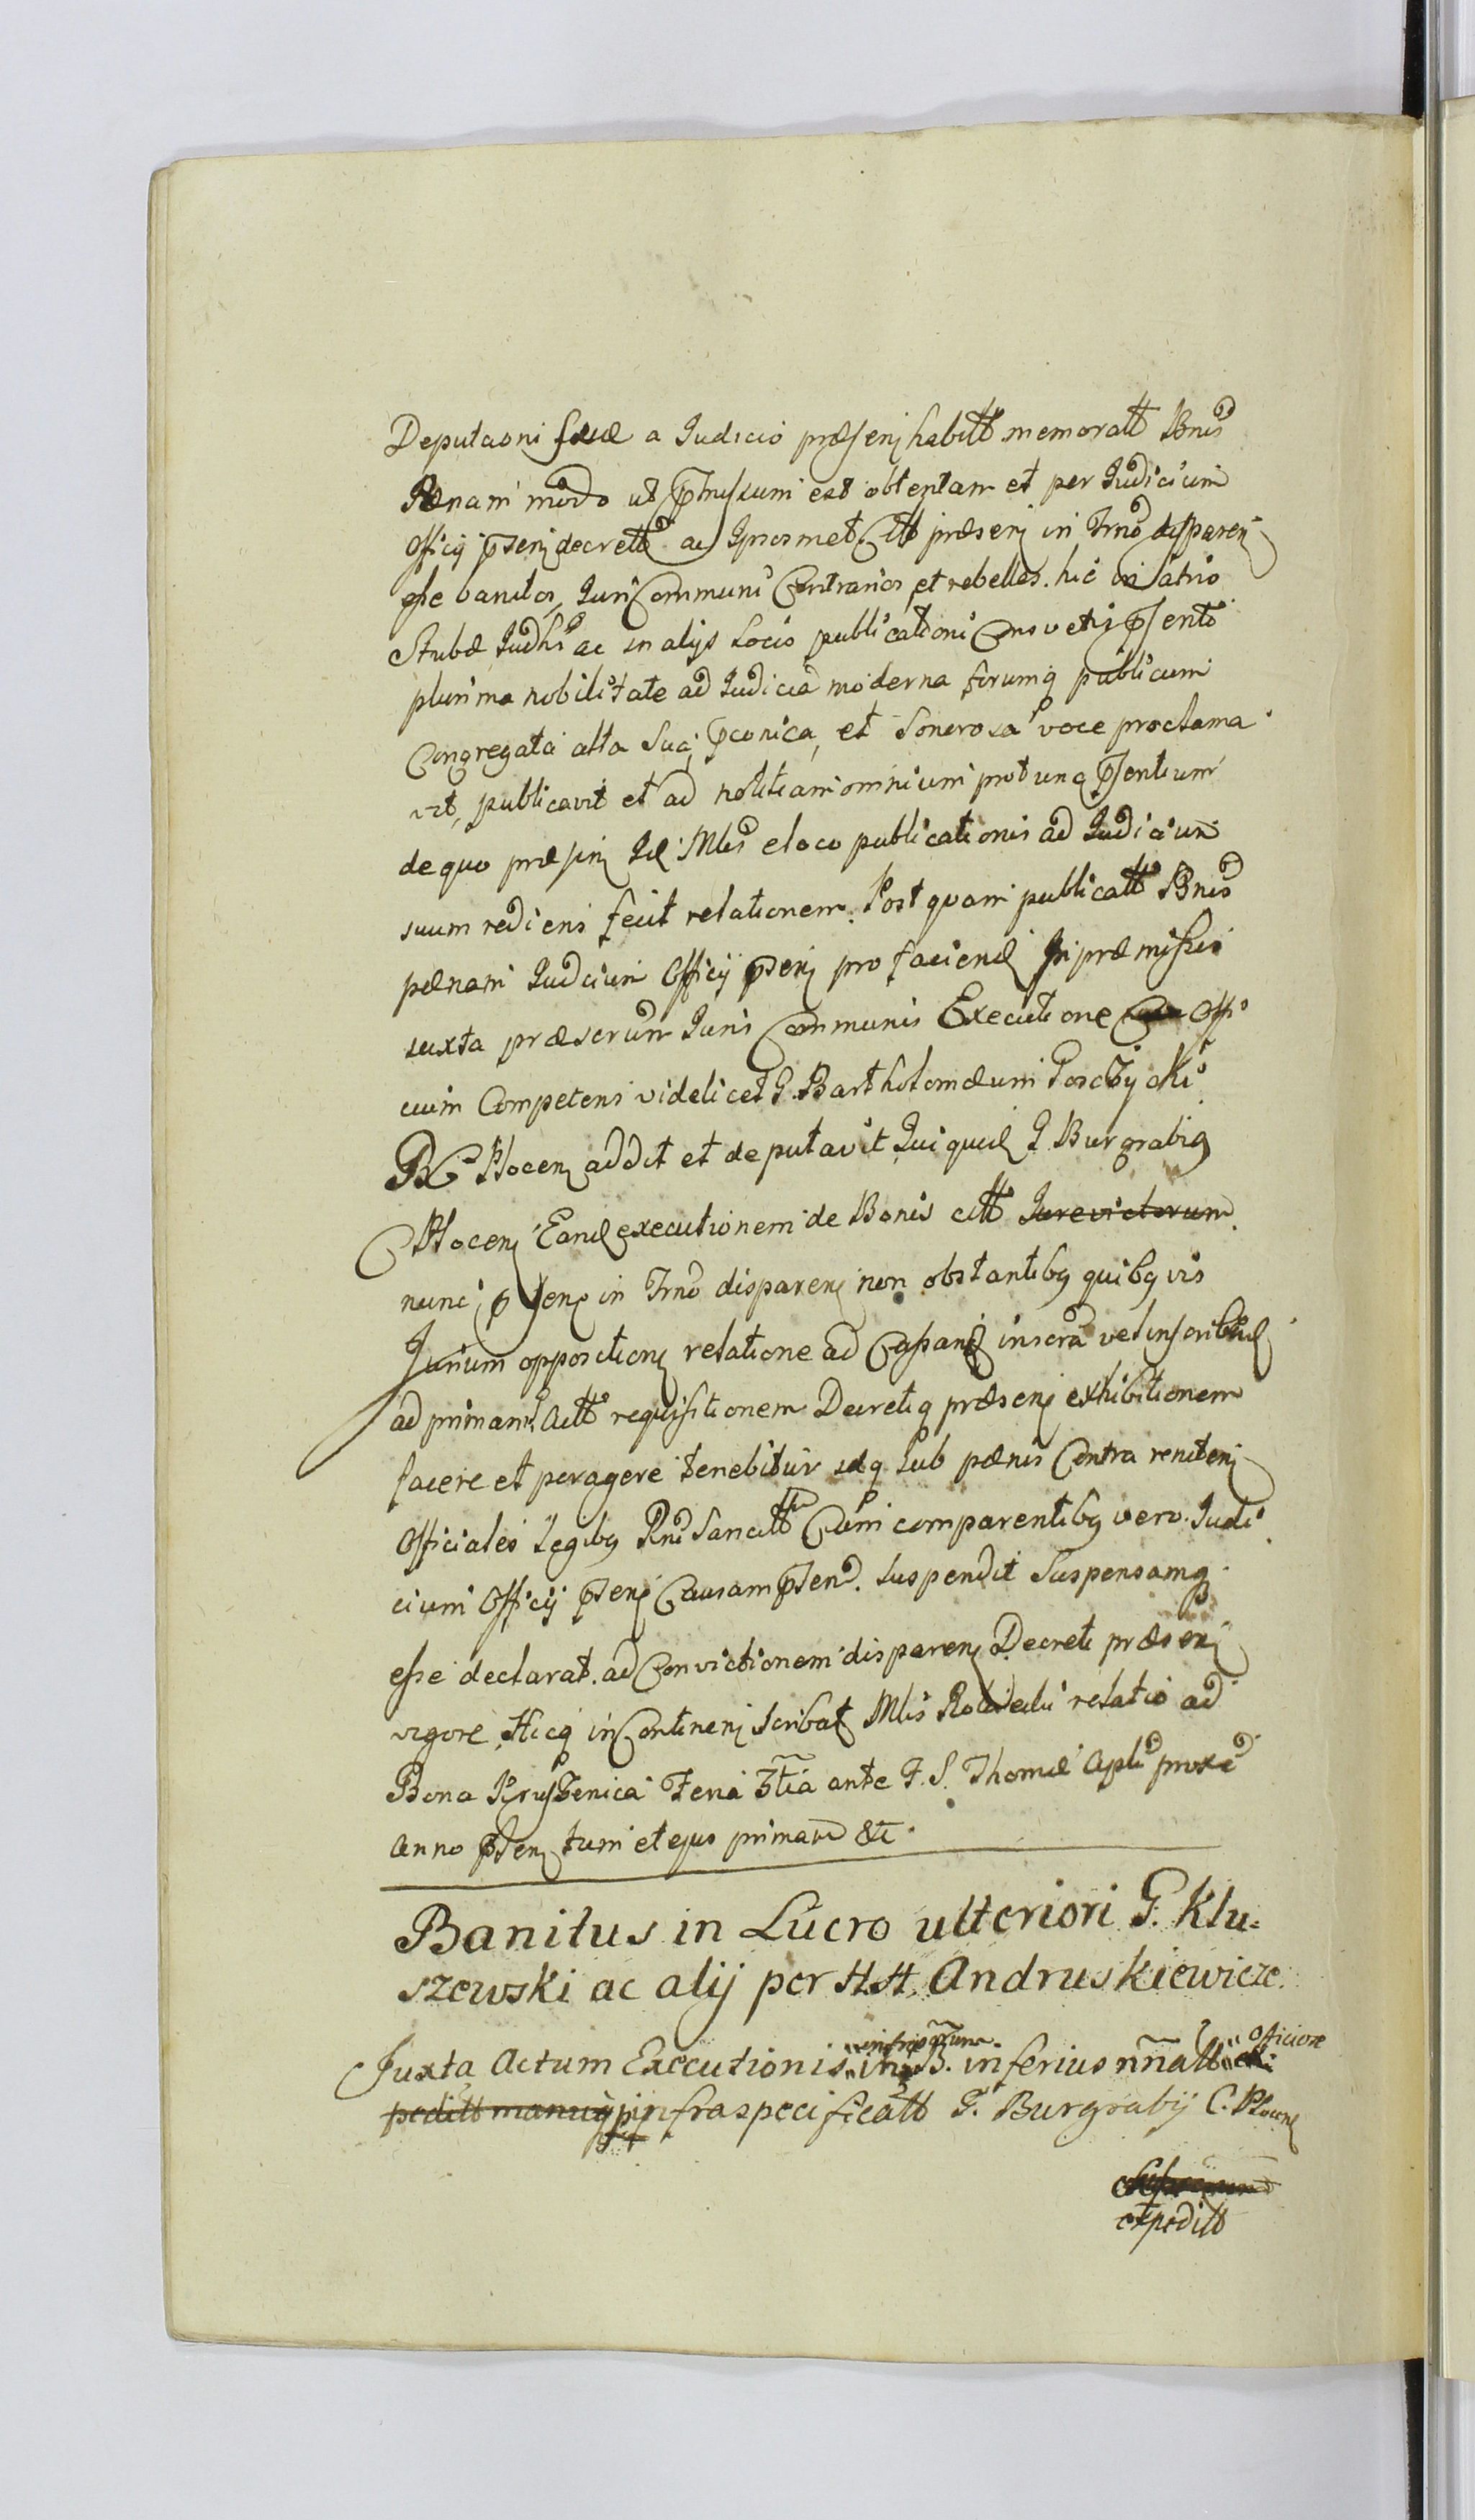 Deputaoni suæ a Iudicio præsenj habitt memoratt Bnis
Pænam modo ut pmissum est obtentam et per Iudicium
Officij psenj decrett ac Ipsosmet Citt præsenj in Trno disparenj
esse banitos, Juri Communi Contrarios et rebelles. hic in atrio
Stubæ Iudlis ac in alijs locis publicationi Consvetis psente
plurima nobilitate ad Iudicia moderna forumq publicum
Congregata alta Sua pconica, et Sonorosa voce proclama
vit, publicavit et ad notitiam omnium protunc psentium
de quo præsenj Idē Mlis e loco publicationis ad Iudicium
suum rediens fecit relationem. Post quam publicatt Bnis
pænam Iudcium Officij psenj pro faciend In præmissis
iuxta præscrum Juris Communis Executione Offi
cium Competens videlicet G. Bartholomæum
Plocen addit et deputavit Qui quid G. Burgrabig
C Plocenj Eand executionem de Bonis citt Jurevictorum
nunc psenj in Trno disparenj non obstantibg quibgvis
Jurium oppositionj relatione ad insera vel inscribend
ad primam Actt requisitionem Decretiq præsenj exhibitionem
facere et peragere tenebitur idq sub pænis Contra renitenj
Officiales Legibg Rni Sancitt Cum comparentibg vero Judi
cium Officij psenj Causam psen. suspendit Suspensamq
esse declarat. ad Convictionem disparenj Decreti præsenj
vigore Hicq in Continenj scribat Mlis relatio ad
Bona Feria 3tia ante F. S. Thomæ Apli proxe
Anno psenj tum et ejus primara &c
Banitus in Lucro ulteriori G. Klu=
szewski ac alij per H.H. Andruskiewicze
Juxta Actum Executionis in B. inferius nn̄att Officiose
peditt manuq infraspecificatt G. Burgrabij C. Plocen
expeditt